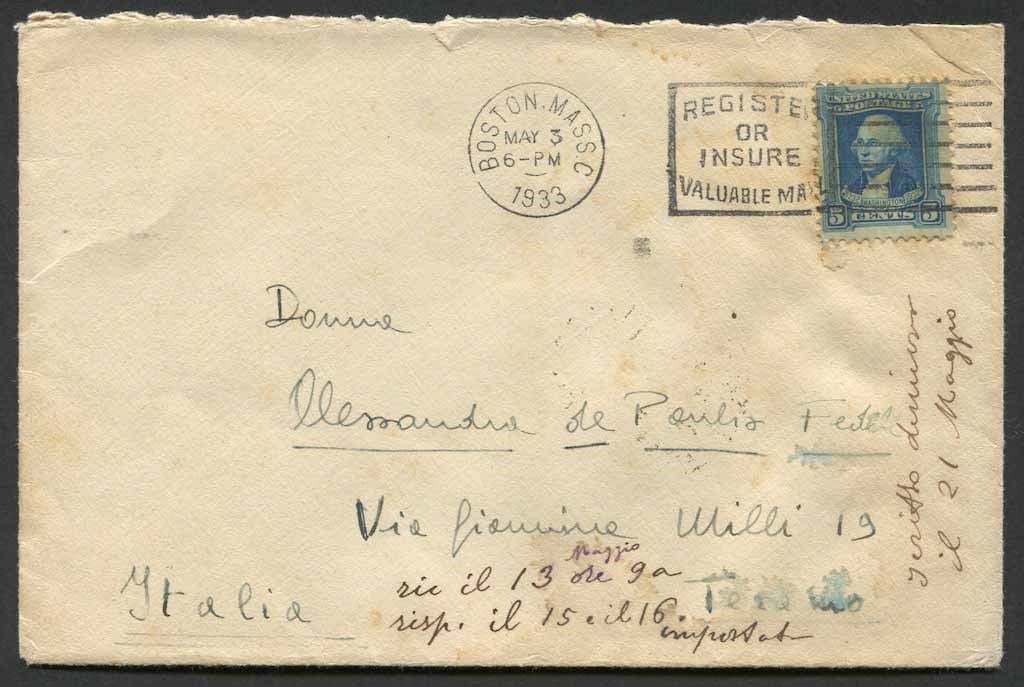 BOSTON, MASS. C
MAY 3
6-PM
1933
REGISTE
OR
INSURE
VALUABLE MA
UNITED STATES
POSTAGE
5 CENTS 5
Donna
Alessandra de Paulis Fedel
Via Giannina Milli 19
Teramo
Italia
ric il 13 Maggio ore 9a
risp. il 15 e il 16. impostata
scritto di nuovo
il 21 Maggio